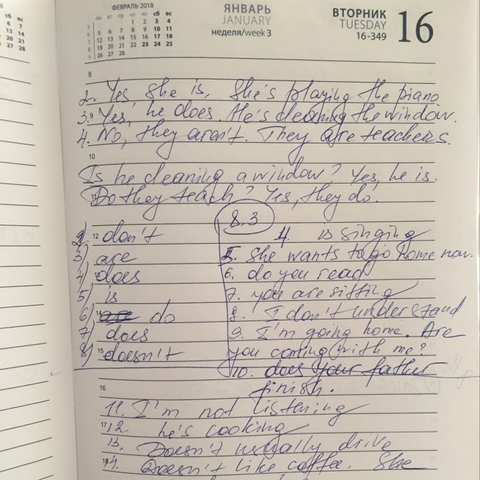 ФЕВРАЛЬ 2018
ЯНВАРЬ
JANUARY
неделя/week 3
ВТОРНИК
TUESDAY
16-349
16
8
2. Yes she is. She's playing the piano
3. Yes, he does. He's cleaning the window.
4. No, they aren't. They are teachers.
10
Is he cleaning a window? Yes, he is.
Do they teach? Yes, they do.
8.3
2) don't
3) are
4) does
5) is
6) do
7) does
8) doesn't
4. is singing
5. She wants to go home now.
6. do you read
7. you are sitting
8. I don't understand
9. I'm going home. Are
you coming with me?
10. does your father
finish.
16
11. I'm not listening
12. he's cooking
13. Doesn't usually drive
14. Doesn't like coffee. She